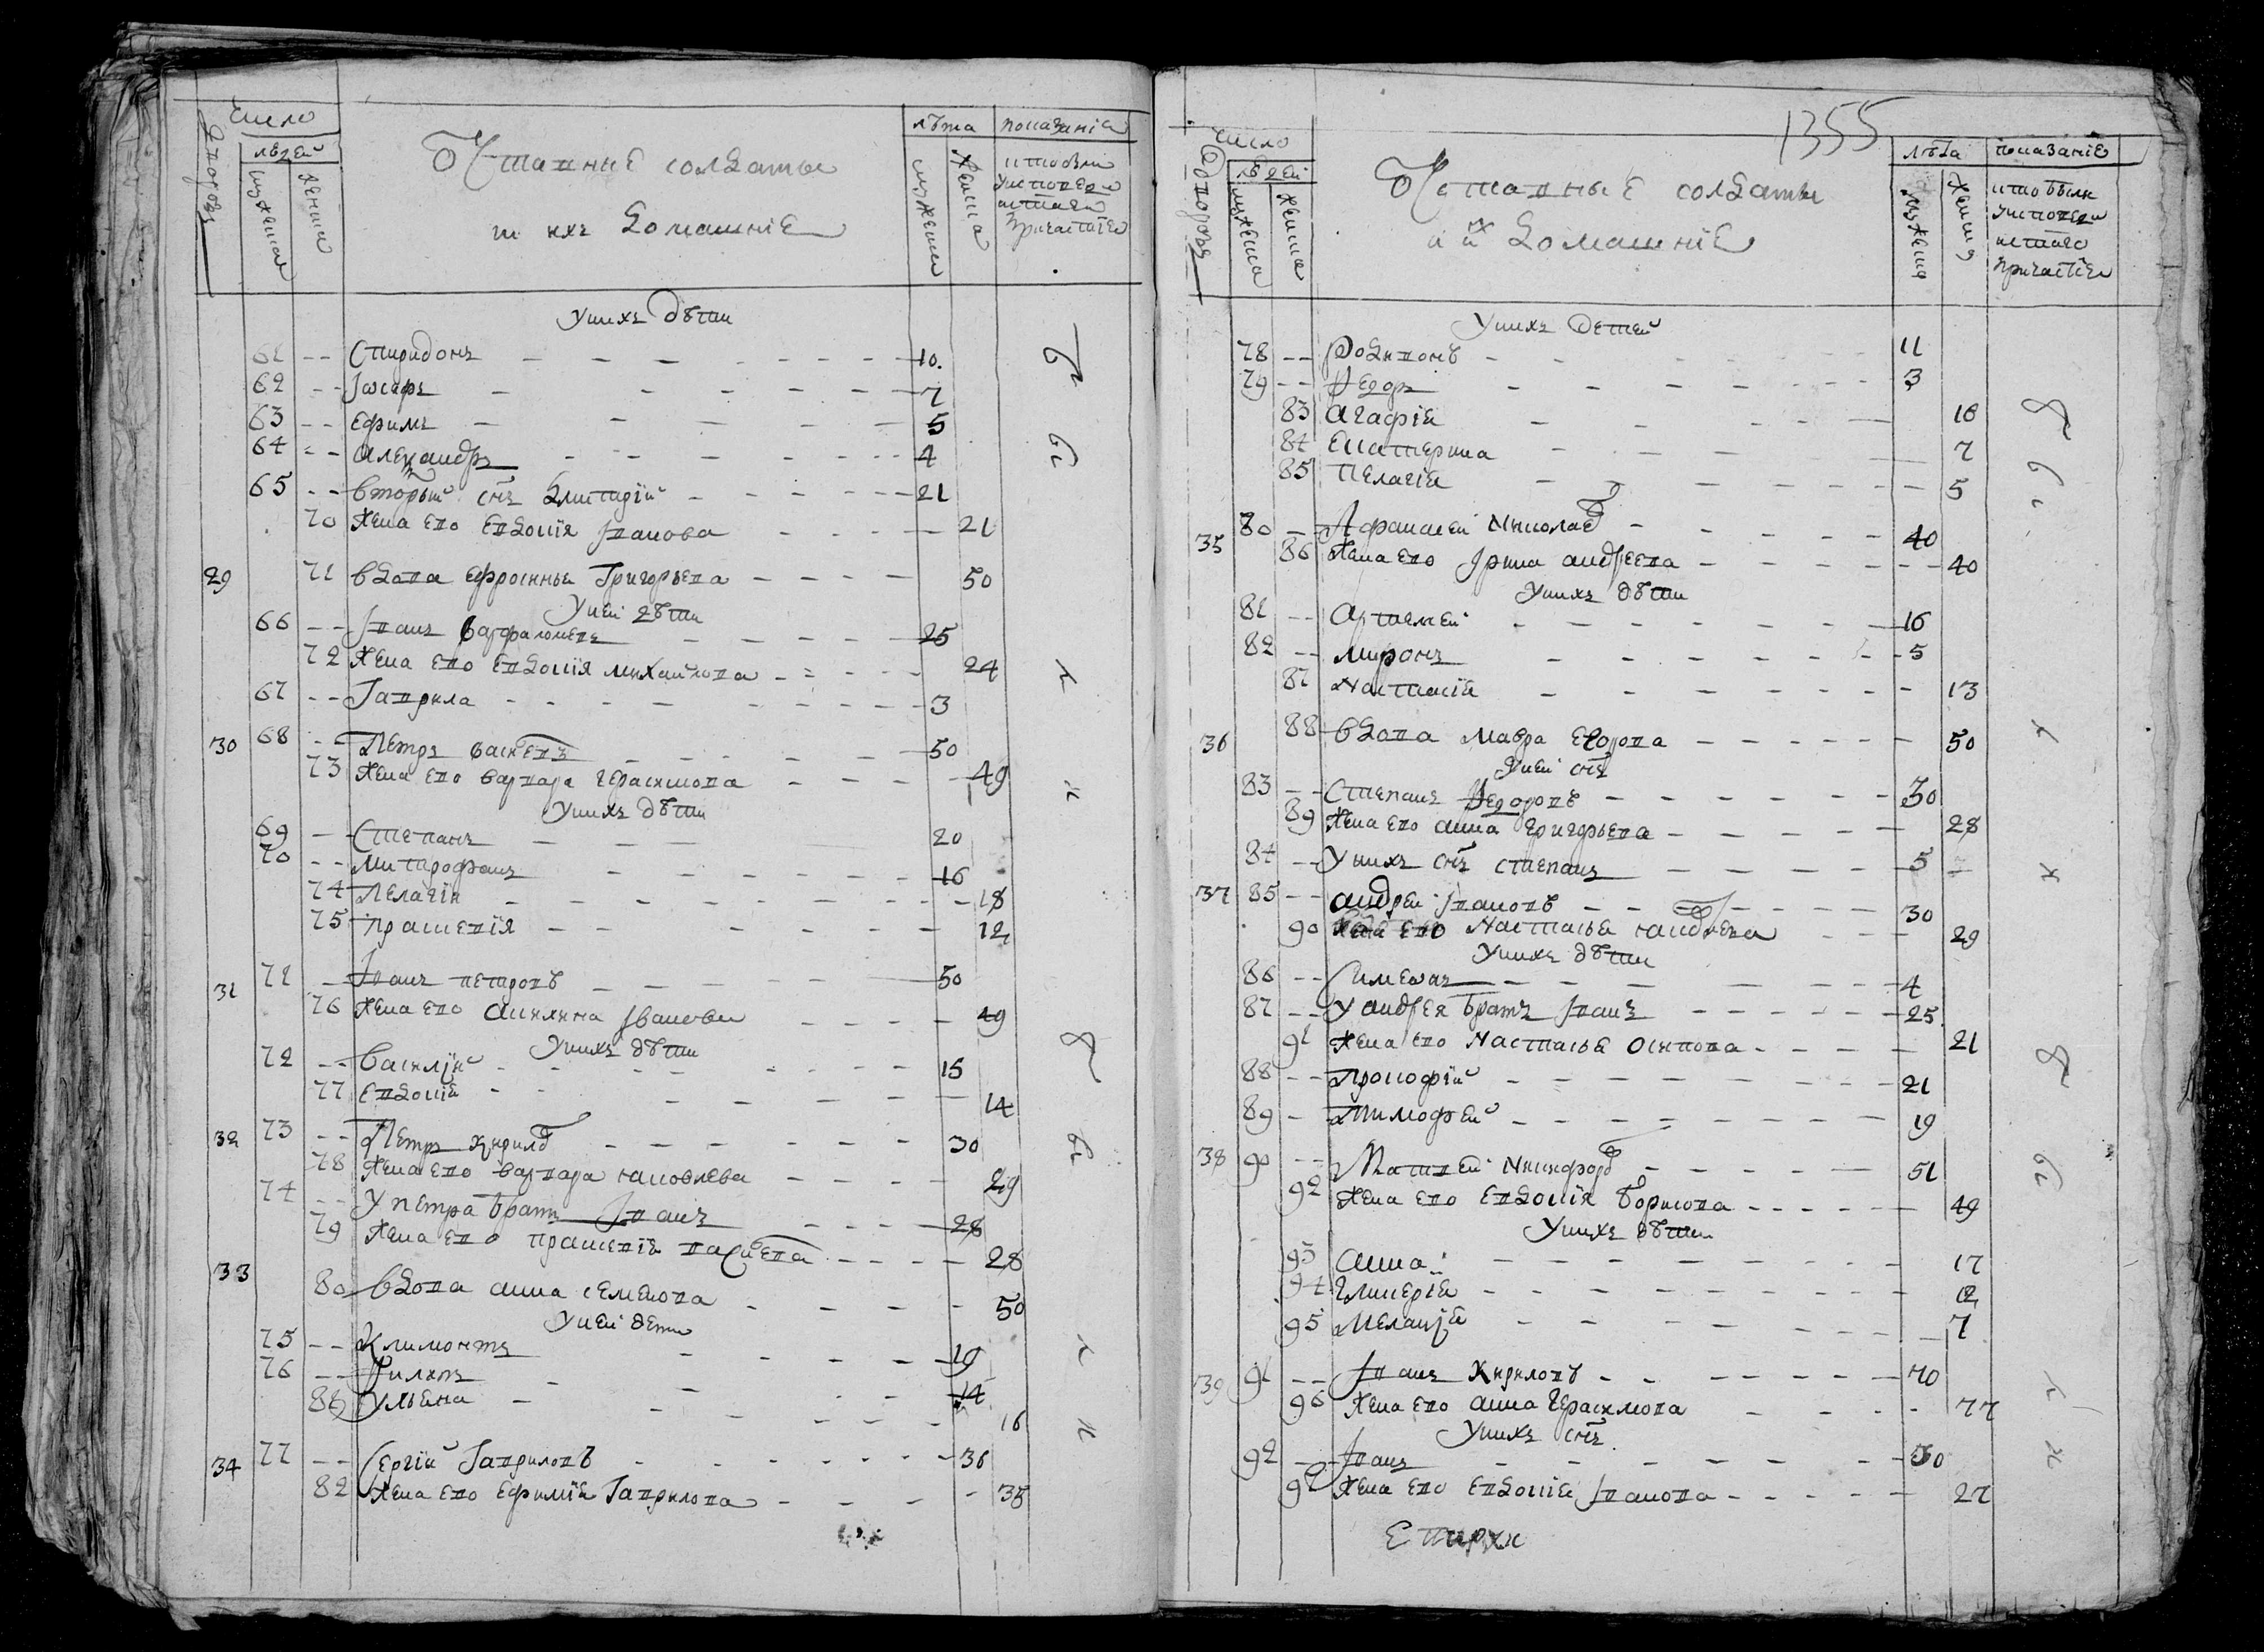 число
дворовъ
людей
мужеска
женска
Отставные солдаты
и ихъ домашніе
лѣта
мужеска
женска
показаніе
кто были
у исповеди
и с͠таго
причастія
У нихъ дѣти
61 -- Спиридонъ 10
62 -- Іосифъ 7
63 -- Ефимъ 5
64 -- Александръ 4
65 -- вторый с͠нъ Дмитрій 21
70 жена ево Евдокія Иванова 21
29 71 вдова Ефросинья Григорьева 50
У ней дѣти
66 -- Іванъ Варфаломеевъ 25
72 жена ево Евдокія михайлова 24
67 -- Гаврила 3
30 68 -- Петръ васи͠евъ 50
73 жена ево варвара Герасимова 49
У нихъ дѣти
69 -- Степанъ 20
70 -- Митрофанъ 16
74 Пелагія 18
75 прасковія 12
31 71 -- Іванъ петровъ 50
76 жена ево Акилина Іванова 49
У нихъ дѣти
72 -- Василій 15
77 Евдокія 14
32 73 -- Петръ кирилов 30
78 жена ево варвара яковлева 29
74 -- У петра братъ Іванъ 28
79 жена ево прасковія васи͠ева 28
33 80 вдова анна семенова 50
У ней дети
75 -- Климонтъ 19
76 -- Филипъ 14
81 Ульяна 16
34 77 -- Сергій Гавриловъ 36
82 жена ево Ефимія Гаврилова 35
1355
число
дворовъ
людей
мужеска
женска
Отставные солдаты
и иx домашніе
лѣта
мужеска
женска
показаніе
кто были
у исповеди
и с͠таго
причастія
У нихъ детей
78 -- Родионъ 11
79 -- Федоръ 3
83 Агафія 10
84 Екатерина 7
85 Пелагія 5
35 80 -- Афанасей Николаев 40
86 жена ево Ірина андреева 40
У нихъ дѣти
81 -- Артемей 16
82 -- Миронъ 5
87 Настасія 13
36 88 вдова Мавра Егорова 50
У ней с͠нъ
83 -- Степанъ Федоровъ 30
89 жена ево анна Григорьева 28
84 -- У нихъ с͠нъ степанъ 5
37 85 -- андрей Івановъ 30
90 жена ево Настасья кандреева 29
У нихъ дѣти
86 -- Симеонъ 4
87 -- У андрея братъ Іванъ 25
91 жена ево Настасья Осипова 21
88 -- Прокофій 21
89 - Тимофей 19
38 90 -- Матвей Никифоров 51
92 жена ево Евдокія Борисова 49
У нихъ дѣти
93 анна 17
94 Гликерія 12
95 Меланія 7
39 91 -- Іванъ Кириловъ 70
96 жена ево анна Герасимова 77
У нихъ с͠нъ
92 -- Іванъ 30
97 жена ево Евдокія Іванова 27